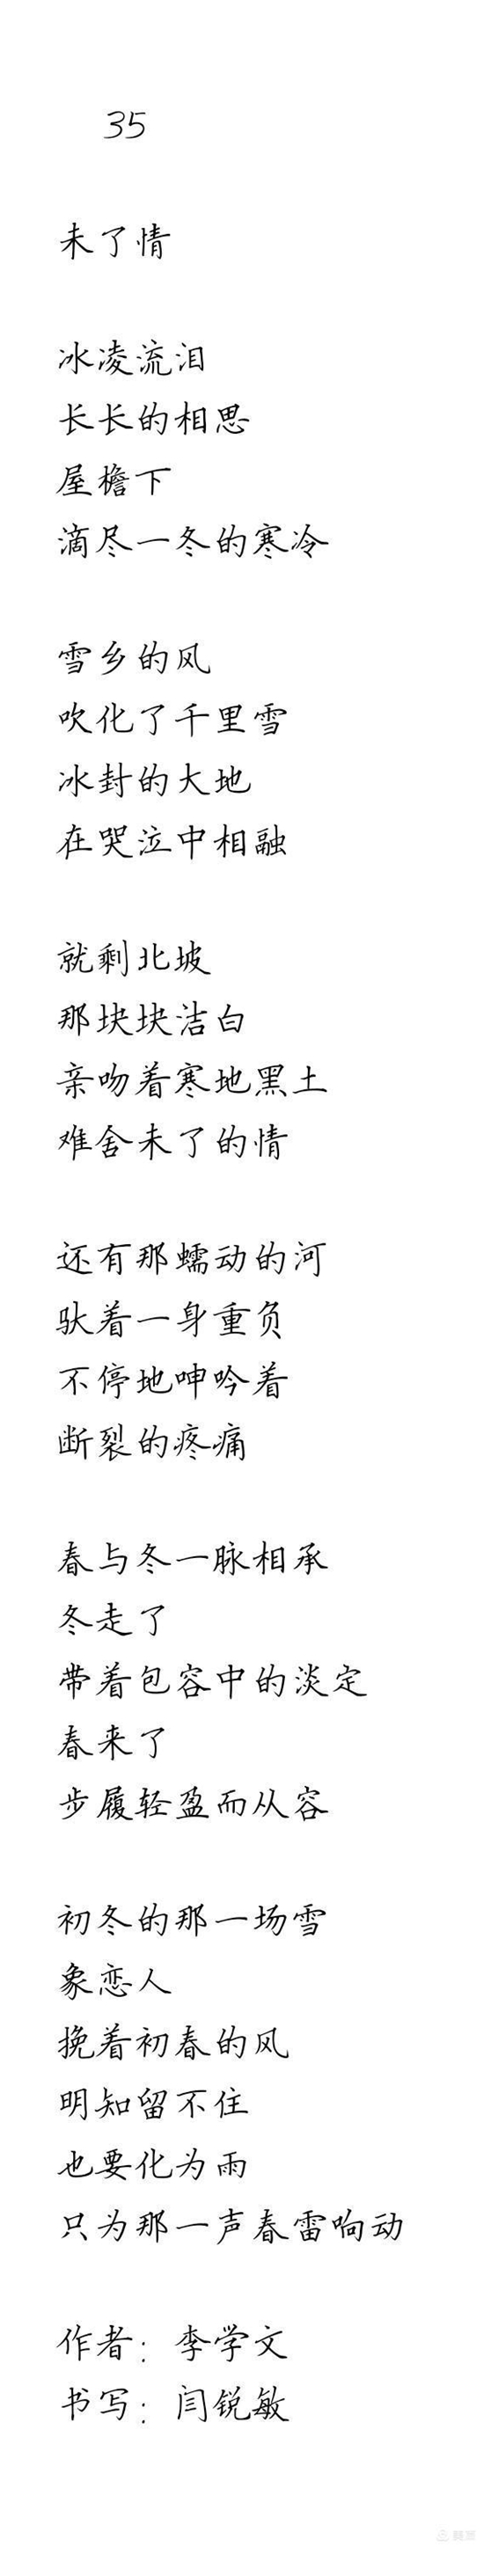 35
未了情
冰凌流泪
长长的相思
屋檐下
滴尽一冬的寒冷
雪乡的风
吹化了千里雪
冰封的大地
在哭泣中相融
就剩北坡
那块块洁白
亲吻着寒地黑土
难舍未了的情
还有那蠕动的河
驮着一身重负
不停地呻吟着
断裂的疼痛
春与冬一脉相承
冬走了
带着包容中的淡定
春来了
步履轻盈而从容
初冬的那一场雪
象恋人
挽着初春的风
明知留不住
也要化为雨
只为那一声春雷响动
作者：李学文
书写：闫锐敏